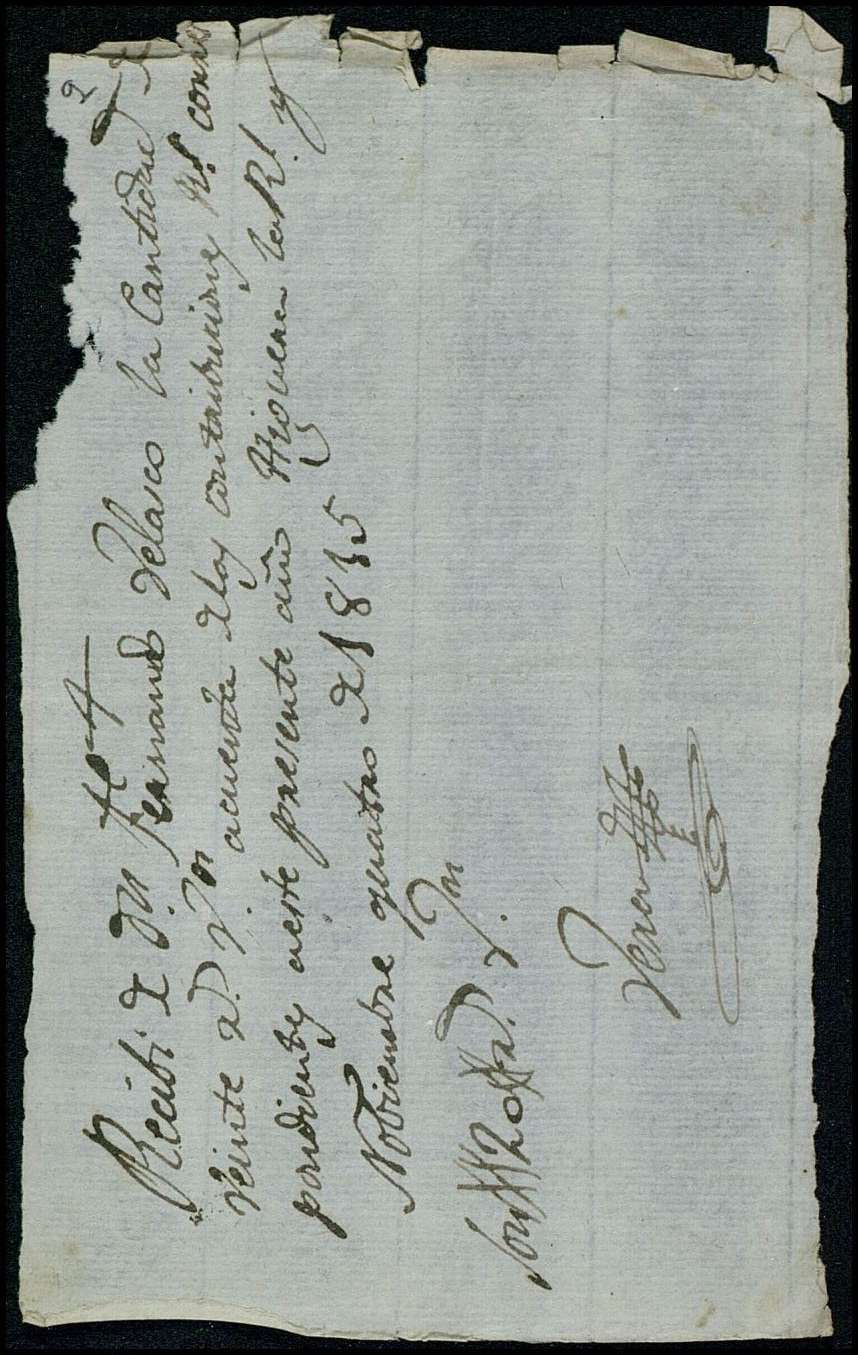 Recibi de Dn. Fernando Velasco la Cantidad de
veinte d. vn acuenta de las contribuciones Rs. corres
pondientes a este presente año Higuera la Rl. y
Nobiembre quatro de 1815
Son 20 d. vn